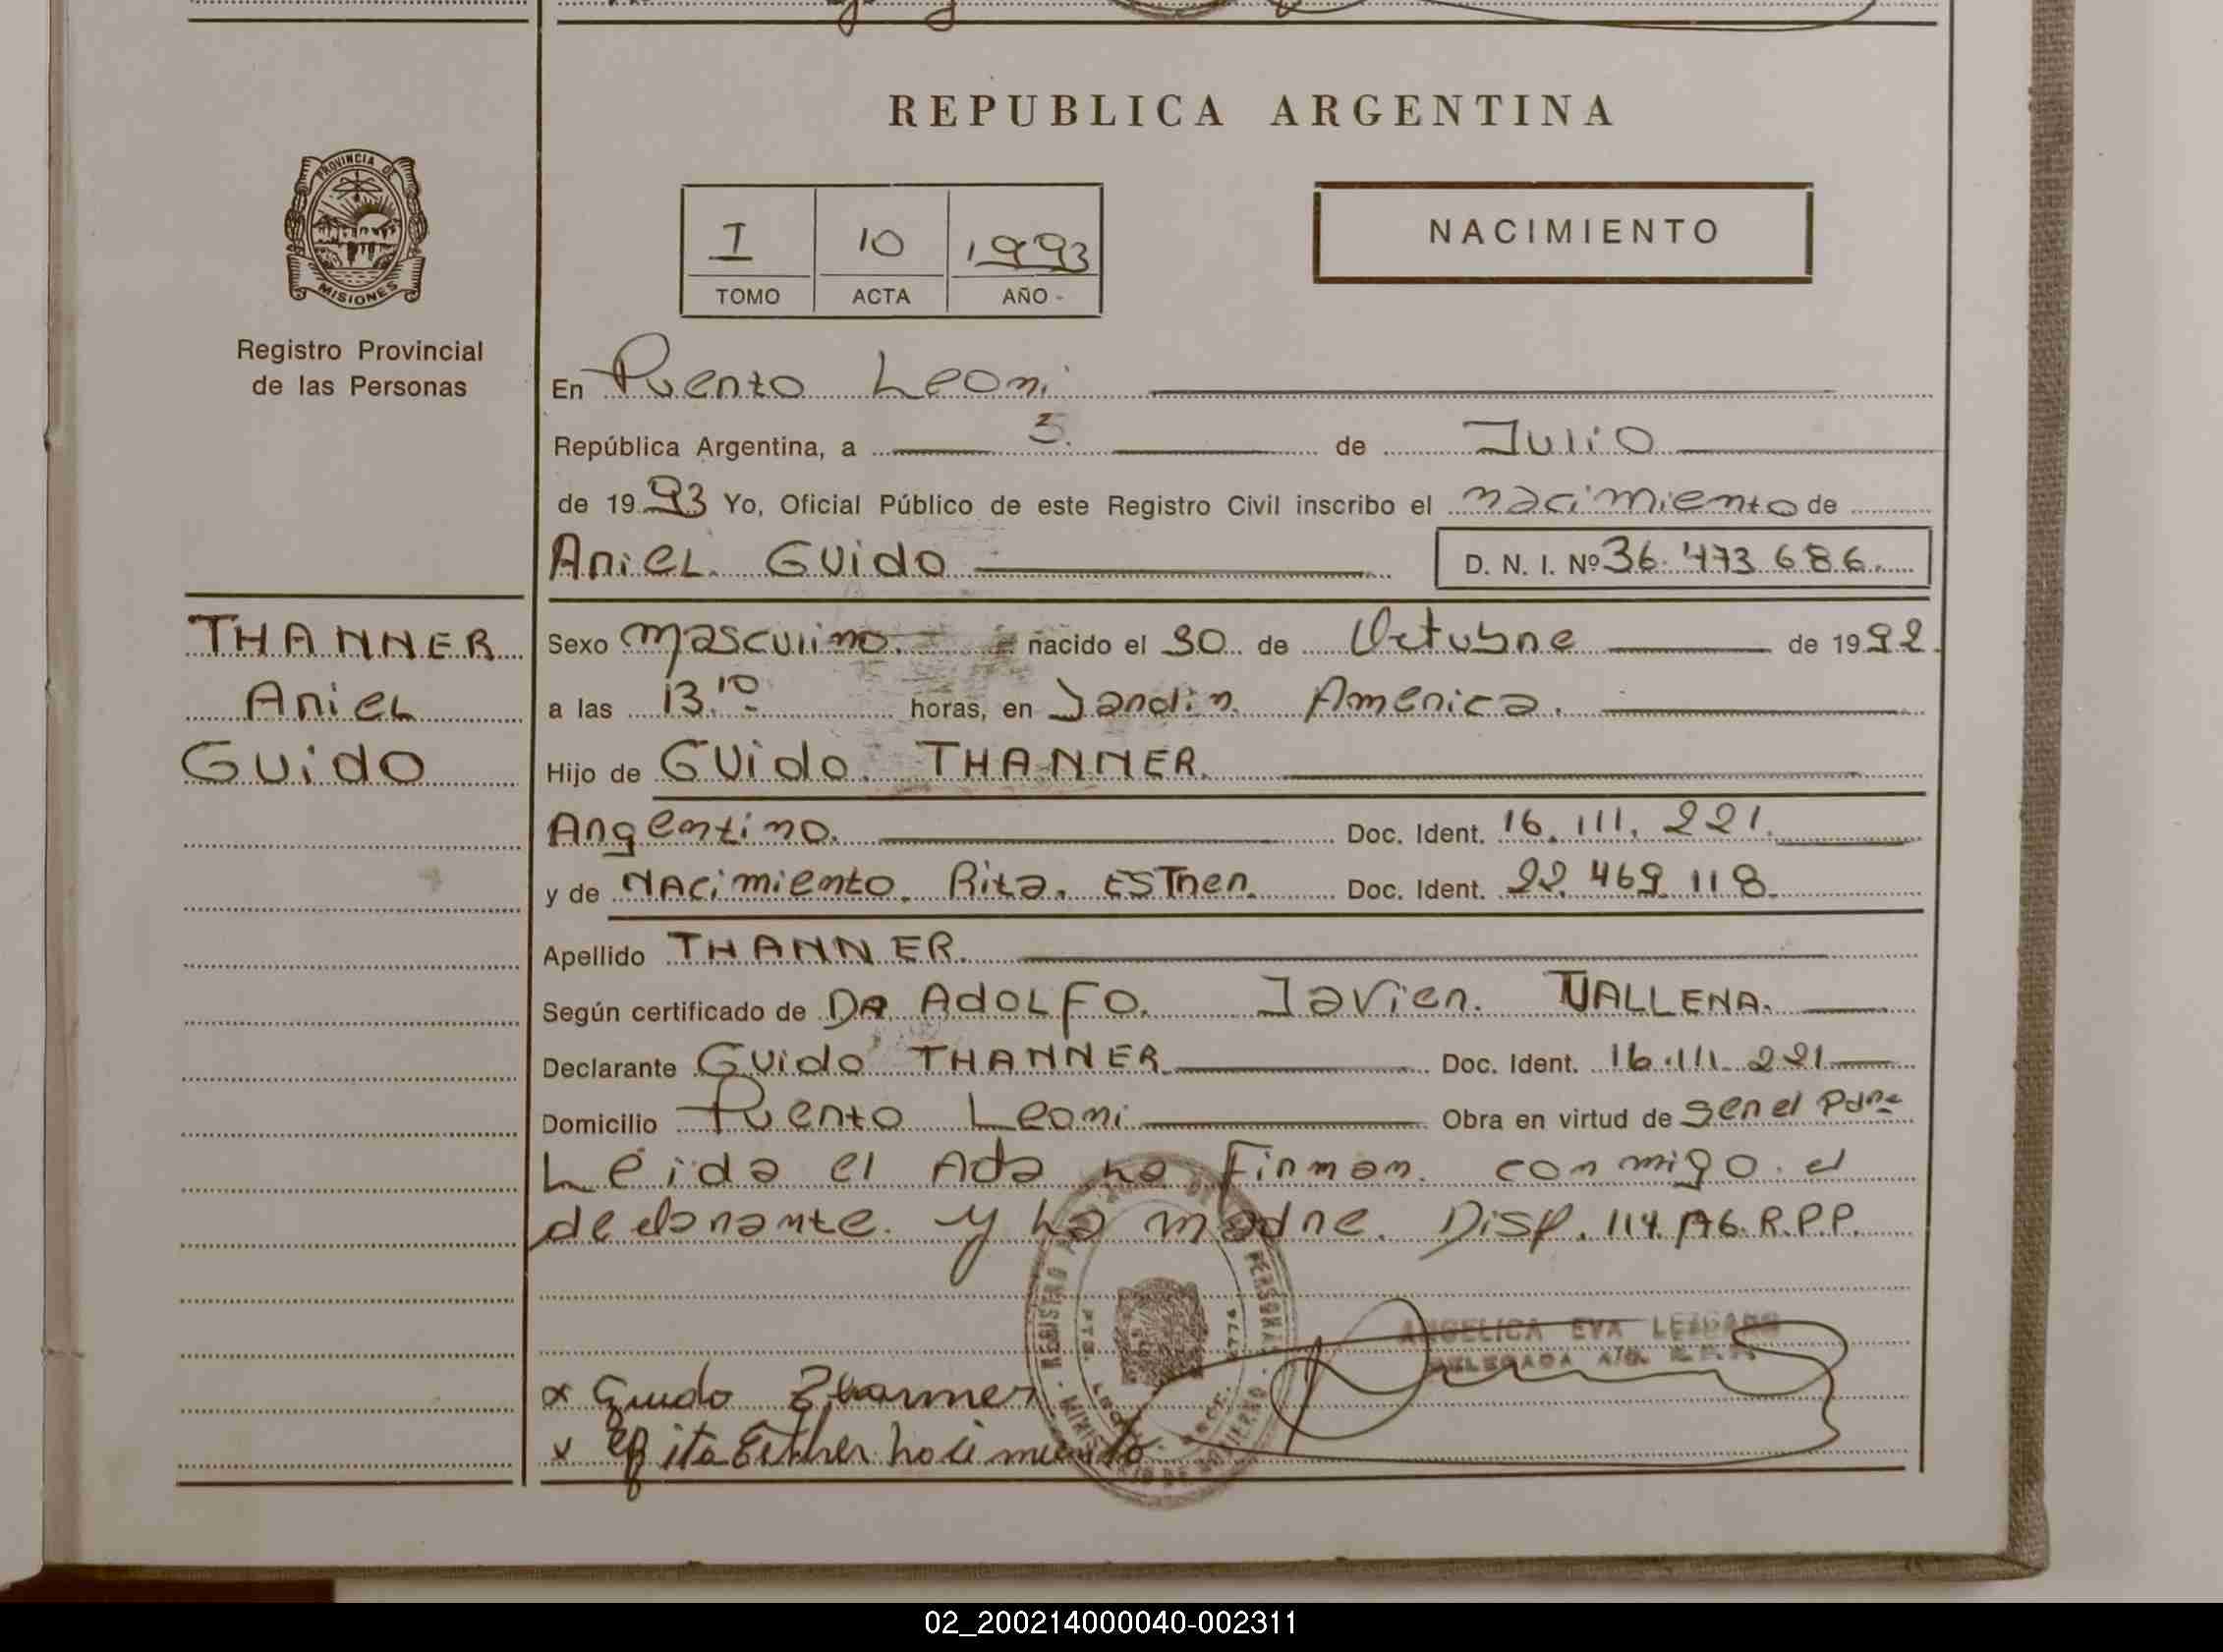 REPUBLICA ARGENTINA
PROVINCIA DE
MISIONES
Registro Provincial
de las Personas
I 10 1993
TOMO ACTA AÑO
NACIMIENTO
En Puerto Leoni
República Argentina, a 5. de Julio
de 1993 Yo, Oficial Público de este Registro Civil inscribo el nacimiento de
Ariel Guido D. N. I. Nº 36.473.686.
THANNER
Ariel
Guido
Sexo masculino. nacido el 30 de Octubre de 1992.
a las 13.10 horas, en Jardin America.
Hijo de Guido THANNER.
Argentino. Doc. Ident. 16.111.221.
y de Nacimiento, Rita, Ester. Doc. Ident. 22.469.118.
Apellido THANNER.
Según certificado de DR ADOLFO. Javier. VALLENA.
Declarante Guido THANNER Doc. Ident. 16.111.221
Domicilio Puerto Leoni Obra en virtud de ser el Padre
Leida el Acta la Firman conmigo el
declarante y La madre. Disp. 114. R.P.P.
ANGELICA EVA
DELEGADA
x Guido Thanner
x Rita Esther Nacimiento
02_200214000040-002311